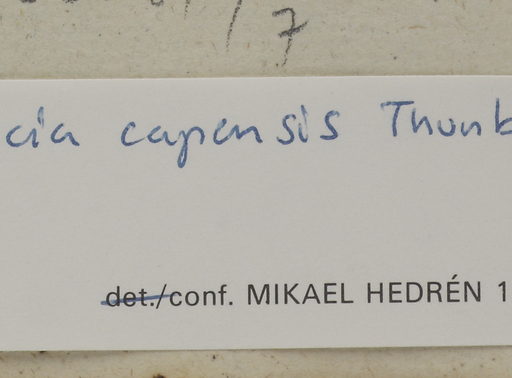 7
cia capensis Thunb
det./conf. MIKAEL HEDRÉN 1